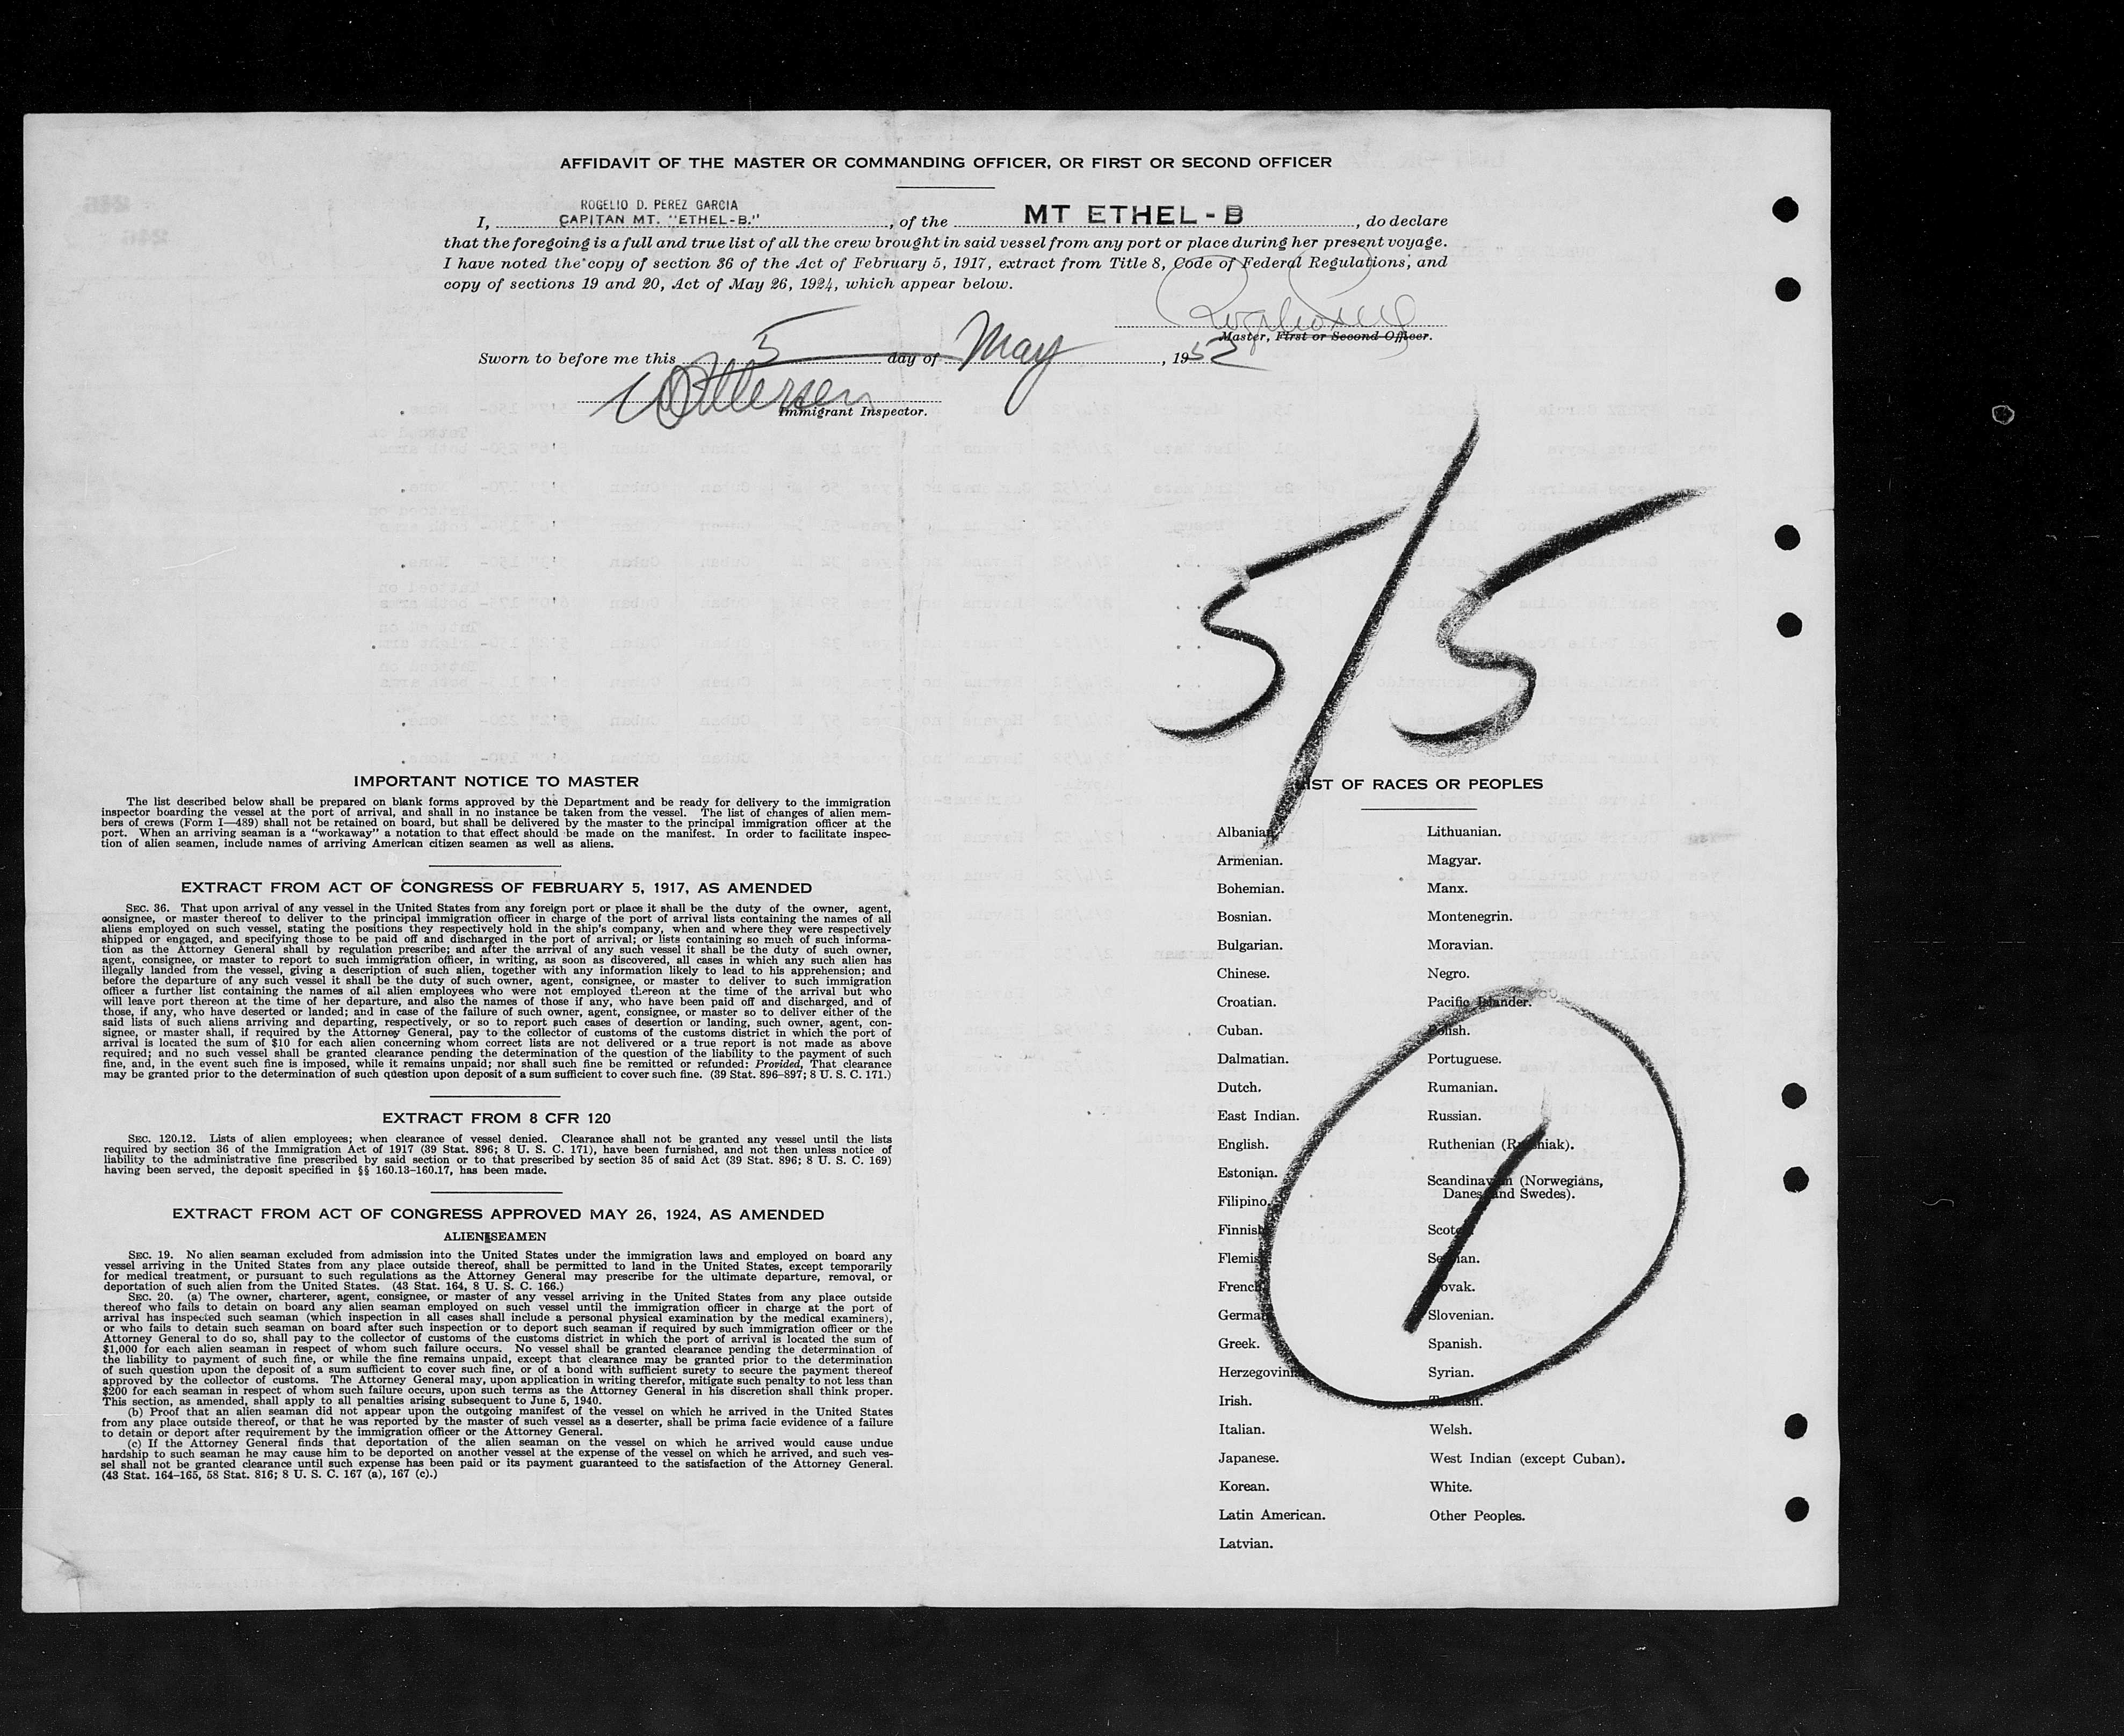 AFFIDAVIT OF THE MASTER OR COMMANDING OFFICER, OR FIRST OR SECOND OFFICER
ROGELIO D. PEREZ GARCIA
I, CAPITAN MT. "ETHEL-B.", of the MT ETHEL-B, do declare
that the foregoing is a full and true list of all the crew brought in said vessel from any port or place during her present voyage.
I have noted the copy of section 36 of the Act of February 5, 1917, extract from Title 8, Code of Federal Regulations, and
copy of sections 19 and 20, Act of May 26, 1924, which appear below.
Master, First or Second Officer.
Sworn to before me this 5 day of May, 1952
Immigrant Inspector.
5/5
IMPORTANT NOTICE TO MASTER
The list described below shall be prepared on blank forms approved by the Department and be ready for delivery to the immigration
inspector boarding the vessel at the port of arrival, and shall in no instance be taken from the vessel. The list of changes of alien mem-
bers of crews (Form I—489) shall not be retained on board, but shall be delivered by the master to the principal immigration officer at the
port. When an arriving seaman is a "workaway" a notation to that effect should be made on the manifest. In order to facilitate inspec-
tion of alien seamen, include names of arriving American citizen seamen as well as aliens.
EXTRACT FROM ACT OF CONGRESS OF FEBRUARY 5, 1917, AS AMENDED
SEC. 36. That upon arrival of any vessel in the United States from any foreign port or place it shall be the duty of the owner, agent,
consignee, or master thereof to deliver to the principal immigration officer in charge of the port of arrival lists containing the names of all
aliens employed on such vessel, stating the positions they respectively hold in the ship's company, when and where they were respectively
shipped or engaged, and specifying those to be paid off and discharged in the port of arrival; or lists containing so much of such informa-
tion as the Attorney General shall by regulation prescribe; and after the arrival of any such vessel it shall be the duty of such owner,
agent, consignee, or master to report to such immigration officer, in writing, as soon as discovered, all cases in which any such alien has
illegally landed from the vessel, giving a description of such alien, together with any information likely to lead to his apprehension; and
before the departure of any such vessel it shall be the duty of such owner, agent, consignee, or master to deliver to such immigration
officer a further list containing the names of all alien employees who were not employed thereon at the time of the arrival but who
will leave port thereon at the time of her departure, and also the names of those if any, who have been paid off and discharged, and of
those, if any, who have deserted or landed; and in case of the failure of such owner, agent, consignee, or master so to deliver either of the
said lists of such aliens arriving and departing, respectively, or so to report such cases of desertion or landing, such owner, agent, con-
signee, or master shall, if required by the Attorney General, pay to the collector of customs of the customs district in which the port of
arrival is located the sum of $10 for each alien concerning whom correct lists are not delivered or a true report is not made as above
required; and no such vessel shall be granted clearance pending the determination of the question of the liability to the payment of such
fine, and, in the event such fine is imposed, while it remains unpaid; nor shall such fine be remitted or refunded: Provided, That clearance
may be granted prior to the determination of such question upon deposit of a sum sufficient to cover such fine. (39 Stat. 896–897; 8 U. S. C. 171.)
EXTRACT FROM 8 CFR 120
SEC. 120.12. Lists of alien employees; when clearance of vessel denied. Clearance shall not be granted any vessel until the lists
required by section 36 of the Immigration Act of 1917 (39 Stat. 896; 8 U. S. C. 171), have been furnished, and not then unless notice of
liability to the administrative fine prescribed by said section or to that prescribed by section 35 of said Act (39 Stat. 896; 8 U. S. C. 169)
having been served, the deposit specified in §§ 160.13–160.17, has been made.
EXTRACT FROM ACT OF CONGRESS APPROVED MAY 26, 1924, AS AMENDED
ALIEN SEAMEN
SEC. 19. No alien seaman excluded from admission into the United States under the immigration laws and employed on board any
vessel arriving in the United States from any place outside thereof, shall be permitted to land in the United States, except temporarily
for medical treatment, or pursuant to such regulations as the Attorney General may prescribe for the ultimate departure, removal, or
deportation of such alien from the United States. (43 Stat. 164, 8 U. S. C. 166.)
SEC. 20. (a) The owner, charterer, agent, consignee, or master of any vessel arriving in the United States from any place outside
thereof who fails to detain on board any alien seaman employed on such vessel until the immigration officer in charge at the port of
arrival has inspected such seaman (which inspection in all cases shall include a personal physical examination by the medical examiners),
or who fails to detain such seaman on board after such inspection or to deport such seaman if required by such immigration officer or the
Attorney General to do so, shall pay to the collector of customs of the customs district in which the port of arrival is located the sum of
$1,000 for each alien seaman in respect of whom such failure occurs. No vessel shall be granted clearance pending the determination of
the liability to payment of such fine, or while the fine remains unpaid, except that clearance may be granted prior to the determination
of such question upon the deposit of a sum sufficient to cover such fine, or of a bond with sufficient surety to secure the payment thereof
approved by the collector of customs. The Attorney General may, upon application in writing therefor, mitigate such penalty to not less than
$200 for each seaman in respect of whom such failure occurs, upon such terms as the Attorney General in his discretion shall think proper.
This section, as amended, shall apply to all penalties arising subsequent to June 5, 1940.
(b) Proof that an alien seaman did not appear upon the outgoing manifest of the vessel on which he arrived in the United States
from any place outside thereof, or that he was reported by the master of such vessel as a deserter, shall be prima facie evidence of a failure
to detain or deport after requirement by the immigration officer or the Attorney General.
(c) If the Attorney General finds that deportation of the alien seaman on the vessel on which he arrived would cause undue
hardship to such seaman he may cause him to be deported on another vessel at the expense of the vessel on which he arrived, and such ves-
sel shall not be granted clearance until such expense has been paid or its payment guaranteed to the satisfaction of the Attorney General.
(43 Stat. 164–165, 58 Stat. 816; 8 U. S. C. 167 (a), 167 (c).)
LIST OF RACES OR PEOPLES
Albanian.
Armenian.
Bohemian.
Bosnian.
Bulgarian.
Chinese.
Croatian.
Cuban.
Dalmatian.
Dutch.
East Indian.
English.
Estonian.
Filipino.
Finnish.
Flemish.
French.
German.
Greek.
Herzegovinian.
Irish.
Italian.
Japanese.
Korean.
Latin American.
Latvian.
Lithuanian.
Magyar.
Manx.
Montenegrin.
Moravian.
Negro.
Pacific Islander.
Polish.
Portuguese.
Rumanian.
Russian.
Ruthenian (Russniak).
Scandinavian (Norwegians,
Danes and Swedes).
Scotch.
Serbian.
Slovak.
Slovenian.
Spanish.
Syrian.
Turkish.
Welsh.
West Indian (except Cuban).
White.
Other Peoples.
1